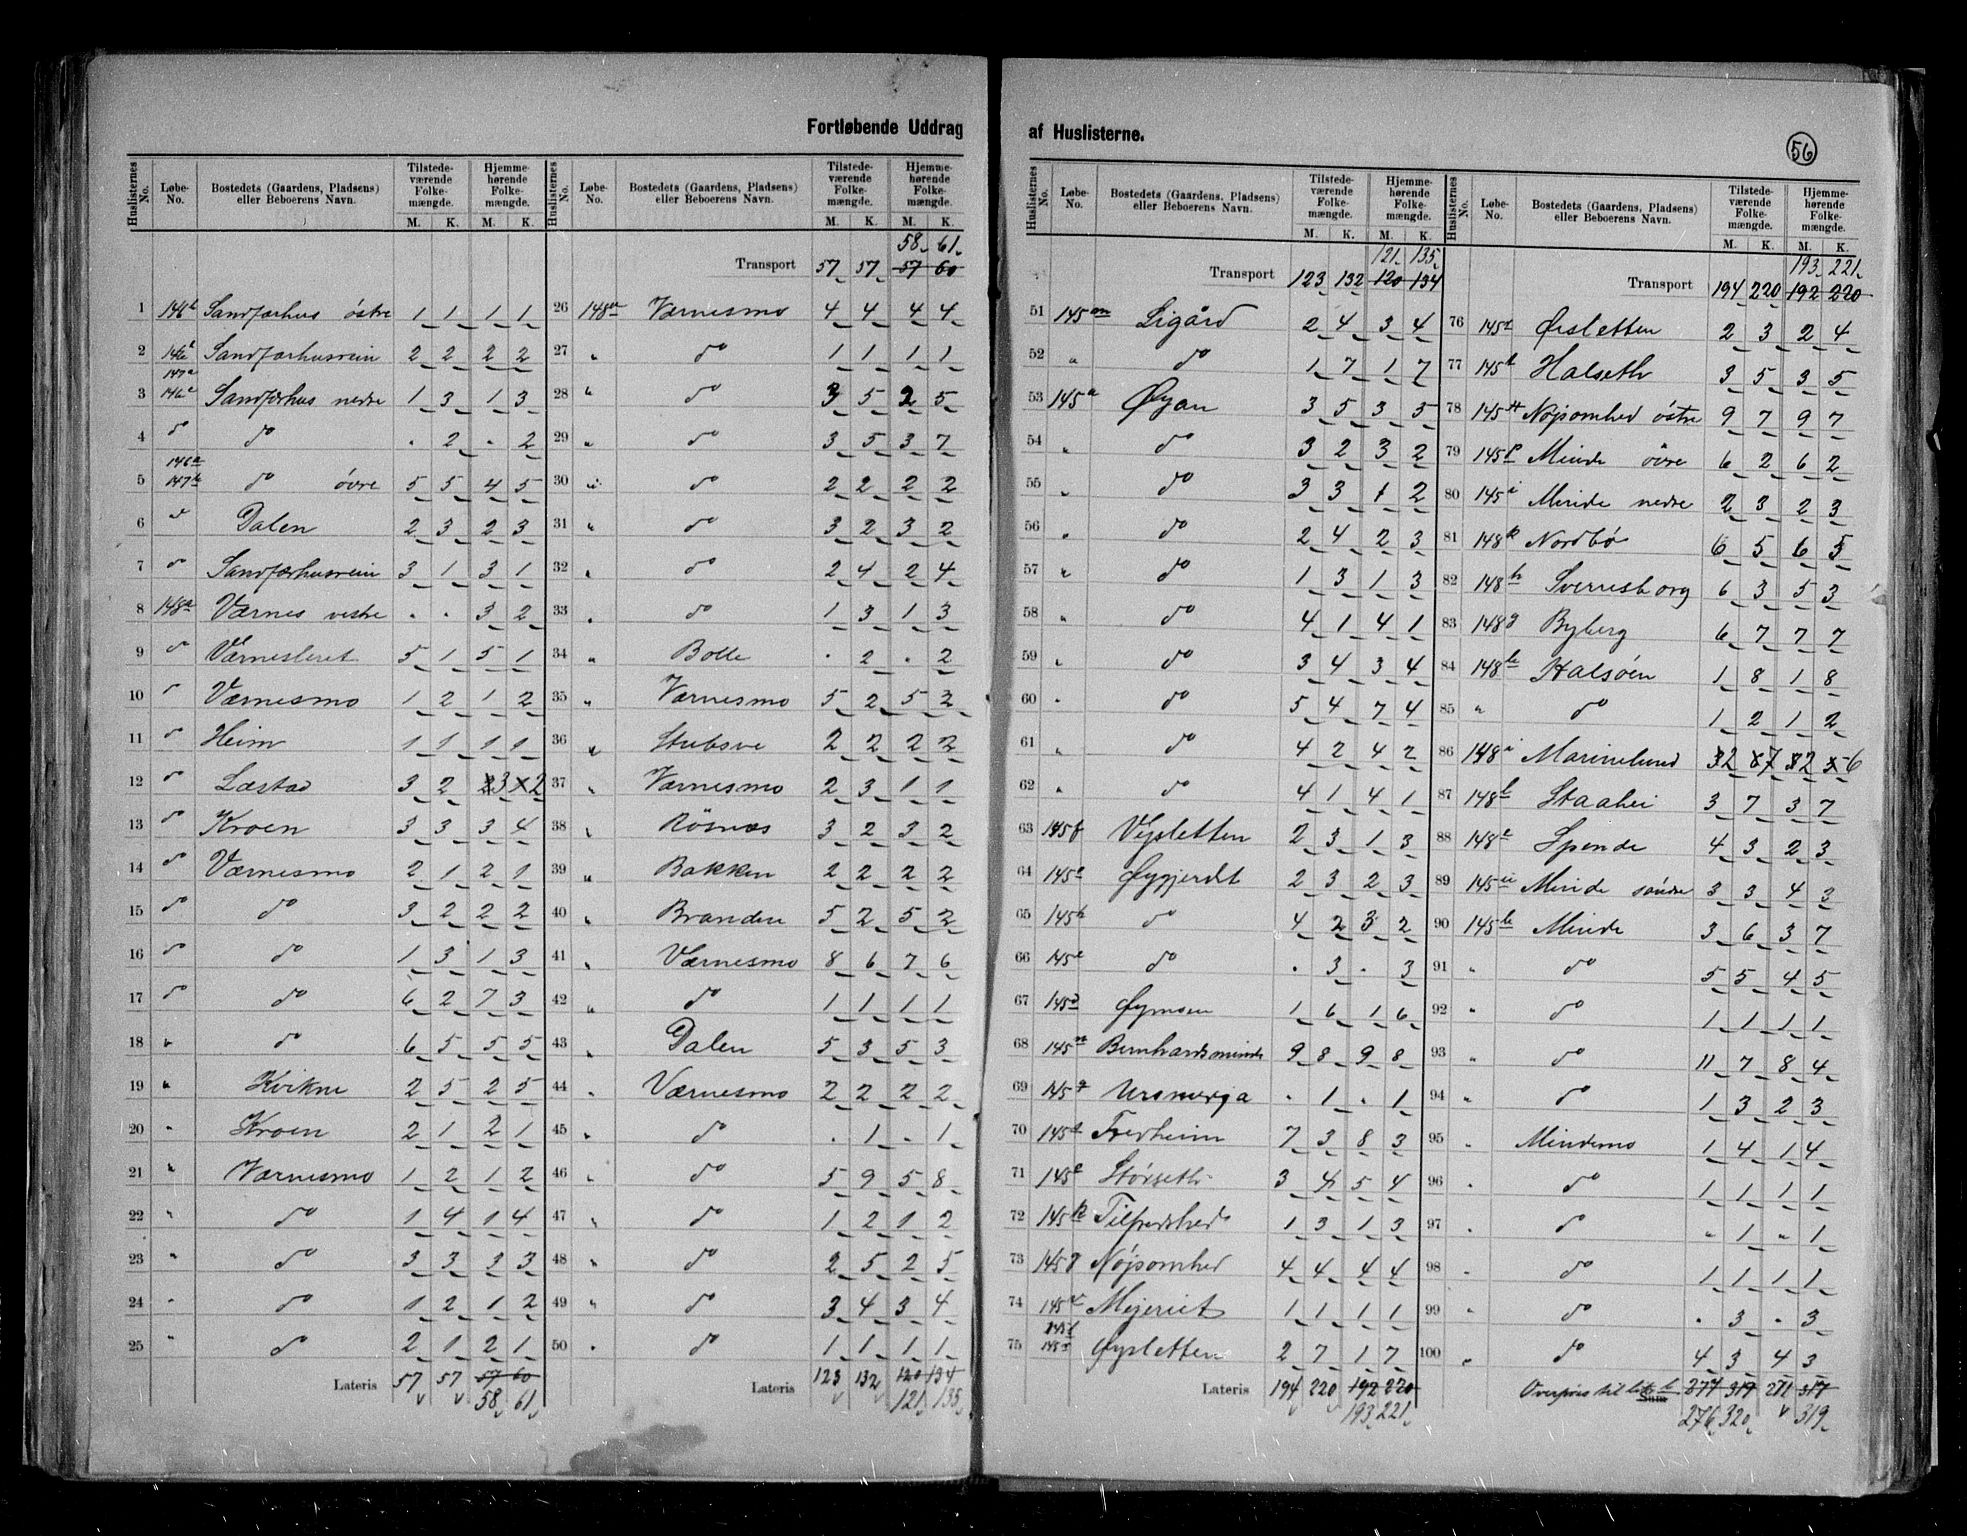 Fortløbende Uddrag af Huslisterne.
56
Huslisternes No. Løbe-No. Bostedets (Gaardens, Pladsens) eller Beboerens Navn. Tilstede-værende Folke-mængde. M. K. Hjemme-hørende Folke-mængde. M. K.
1 146b Sandfærhus østre 1 1 1 1
2 146b Sandfærhusrein 2 2 2 2
147a
3 146c Sandfærhus nedre 1 3 1 3
4 do do . 2 . 2
146a
5 147b do övre 5 5 4 5
6 Dalen 2 3 2 3
7 do Sandfærhusrein 3 1 3 1
8 148a Værnes vestre . . 3 2
9 do Værnesleret 5 1 5 1
10 Værnesmo 1 2 1 2
11 do Heim 1 1 1 1
12 do Læstad 3 2 3 2
13 do Kroen 3 3 3 4
14 do Værnesmo 2 1 2 1
15 do do 3 2 2 2
16 do do 1 3 1 3
17 do do 6 2 7 3
18 " do 6 5 5 5
19 " Kvikne 2 5 2 5
20 " Kroen 2 1 2 1
21 " Værnesmo 1 2 1 2
22 " do 1 4 1 4
23 " do 3 3 3 3
24 " do 1 2 1 2
25 " do 2 1 2 1
Lateris 57 57 57 60
58 61
Huslisternes No. Løbe-No. Bostedets (Gaardens, Pladsens) eller Beboerens Navn. Tilstede-værende Folke-mængde. M. K. Hjemme-hørende Folke-mængde. M. K.
58 61
Transport 57 57 57 60
26 148a Værnesmo 4 4 4 4
27 " do 1 1 1 1
28 " do 3 5 2 5
29 " do 3 5 3 7
30 " do 2 2 2 2
31 " do 3 2 3 2
32 " do 2 4 2 4
33 " do 1 3 1 3
34 " Bolle . 2 . 2
35 " Værnesmo 5 2 5 2
36 " Stubsve 2 2 2 2
37 " Værnesmo 2 3 1 1
38 " Rösnæs 3 2 3 2
39 " Bakken 2 2 2 2
40 " Branden 5 2 5 2
41 " Værnesmo 8 6 7 6
42 " do 1 1 1 1
43 " Dalen 5 3 5 3
44 " Værnesmo 2 2 2 2
45 " do . 1 . 1
46 " do 5 9 5 8
47 " do 1 2 1 2
48 " do 2 5 2 5
49 " do 3 4 3 4
50 " do 1 1 1 1
Lateris 123 132 120 134
121 135
Huslisternes No. Løbe-No. Bostedets (Gaardens, Pladsens) eller Beboerens Navn. Tilstede-værende Folke-mængde. M. K. Hjemme-hørende Folke-mængde. M. K.
121 135
Transport 123 132 120 134
51 145m Ligård 2 4 3 4
52 " do 1 7 1 7
53 145a Øyan 3 5 3 5
54 " do 3 2 3 2
55 " do 3 3 1 2
56 " do 2 4 2 3
57 " do 1 3 1 3
58 " do 4 1 4 1
59 " do 3 4 3 4
60 " do 5 4 7 4
61 " do 4 2 4 2
62 " do 4 1 4 1
63 145f Vejsletten 2 3 1 3
64 145e Øygjerdt 2 3 2 3
65 145h do 4 2 3 2
66 145c do . 3 . 3
67 145d Øymoen 1 6 1 6
68 145n Bernhardsminde 9 8 9 8
69 145 . 1 . 1
70 145 Fredheim 7 3 8 3
71 145 Störseth 3 4 5 4
72 145 Tilfredshed 1 3 1 3
73 145 Nøjsomhed 4 4 4 4
74 145 Mejeriet 1 1 1 1
145l
75 145s Øysletten 2 7 1 7
Lateris 194 220 192 220
193 221
Huslisternes No. Løbe-No. Bostedets (Gaardens, Pladsens) eller Beboerens Navn. Tilstede-værende Folke-mængde. M. K. Hjemme-hørende Folke-mængde. M. K.
193 221
Transport 194 220 192 220
76 145 Øisletten 2 3 2 4
77 145 Halseth 3 5 3 5
78 145 Nøjsomhed östre 9 7 9 7
79 145p Minde övre 6 2 6 2
80 145i Minde nedre 2 3 2 3
81 148k Nordbø 6 5 6 5
82 148h Sverresborg 6 3 5 3
83 148g Byberg 6 7 7 7
84 148b Halsøen 1 8 1 8
85 " do 1 2 1 2
86 148i Marinelund 2 7 2 6
87 148 Staahei 3 7 3 7
88 148 Spende 4 3 2 3
89 145 Minde söndre 3 3 4 3
90 145b Minde 3 6 3 7
91 " do 5 5 4 5
92 " do 1 1 1 1
93 " do 11 7 8 4
94 " do 1 3 2 3
95 " Mindemo 1 4 1 4
96 " do 1 1 1 1
97 " do " 1 " 1
98 " do 1 1 1 1
99 " do . 3 . 3
100 " do 4 3 4 3
Overføres til Sum 277 319 271 317
276 320 319